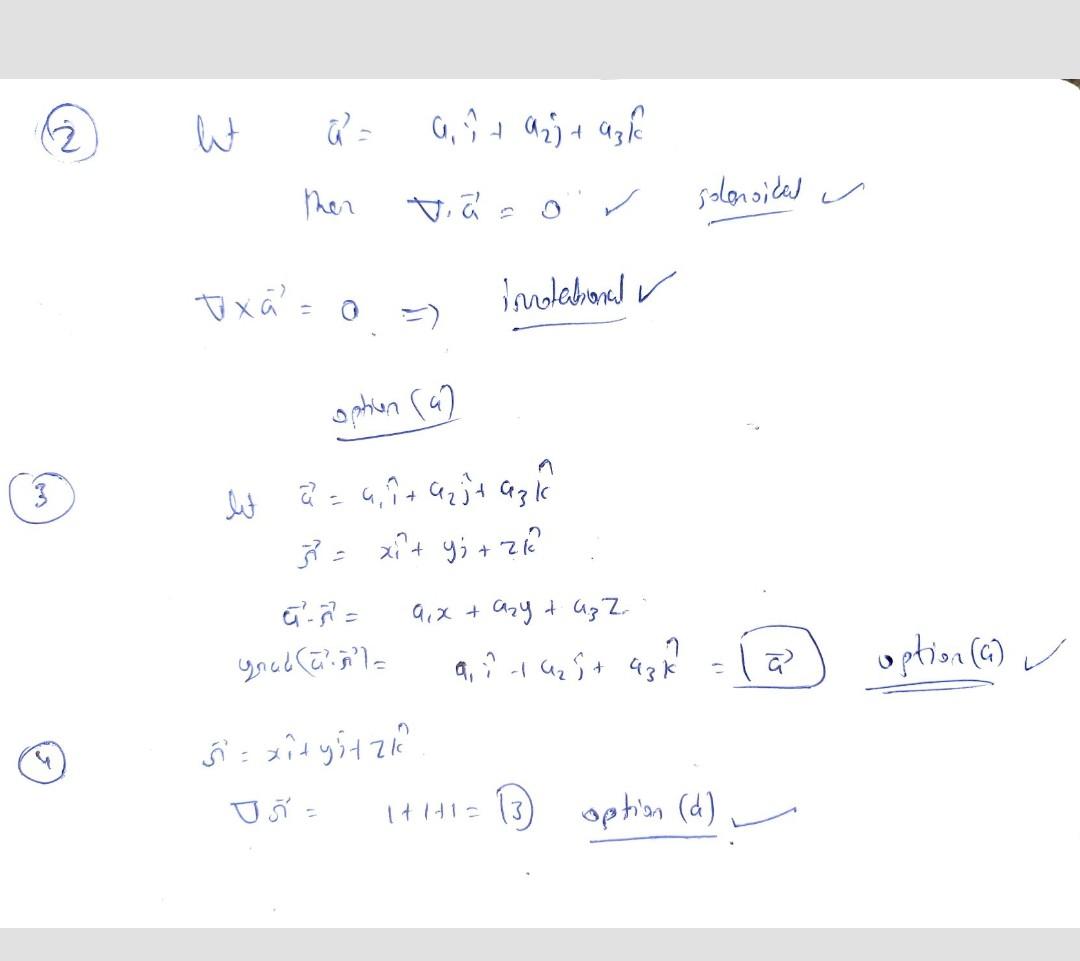 ② let a⃗ = a₁î + a₂ĵ + a₃k̂
Then ∇.a⃗ = 0 ✓ solenoidal ✓
∇×a⃗ = 0 ⇒ irrotational ✓
option (a)
③ let a⃗ = a₁î + a₂ĵ + a₃k̂
r⃗ = xî + yĵ + zk̂
a⃗.r⃗ = a₁x + a₂y + a₃z
grad(a⃗.r⃗) = a₁î + a₂ĵ + a₃k̂ = a⃗ option (a) ✓
④ r⃗ = xî + yĵ + zk̂
∇r⃗ = 1+1+1 = ③ option (d) ✓